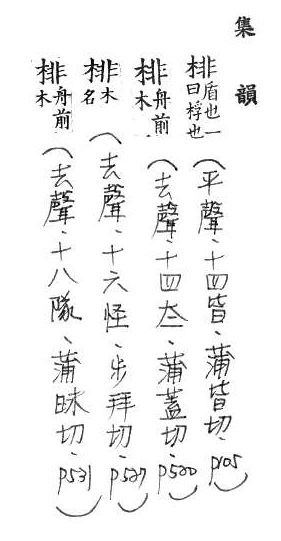 集韻
棑盾也一曰桴也(平聲、十四皆、蒲皆切、p105)
棑舟前木(去聲、十四夳、蒲蓋切、p520)
棑木名(去聲、十六怪、步拜切、p527)
棑舟前木(去聲、十八隊、蒲昧切、p531)